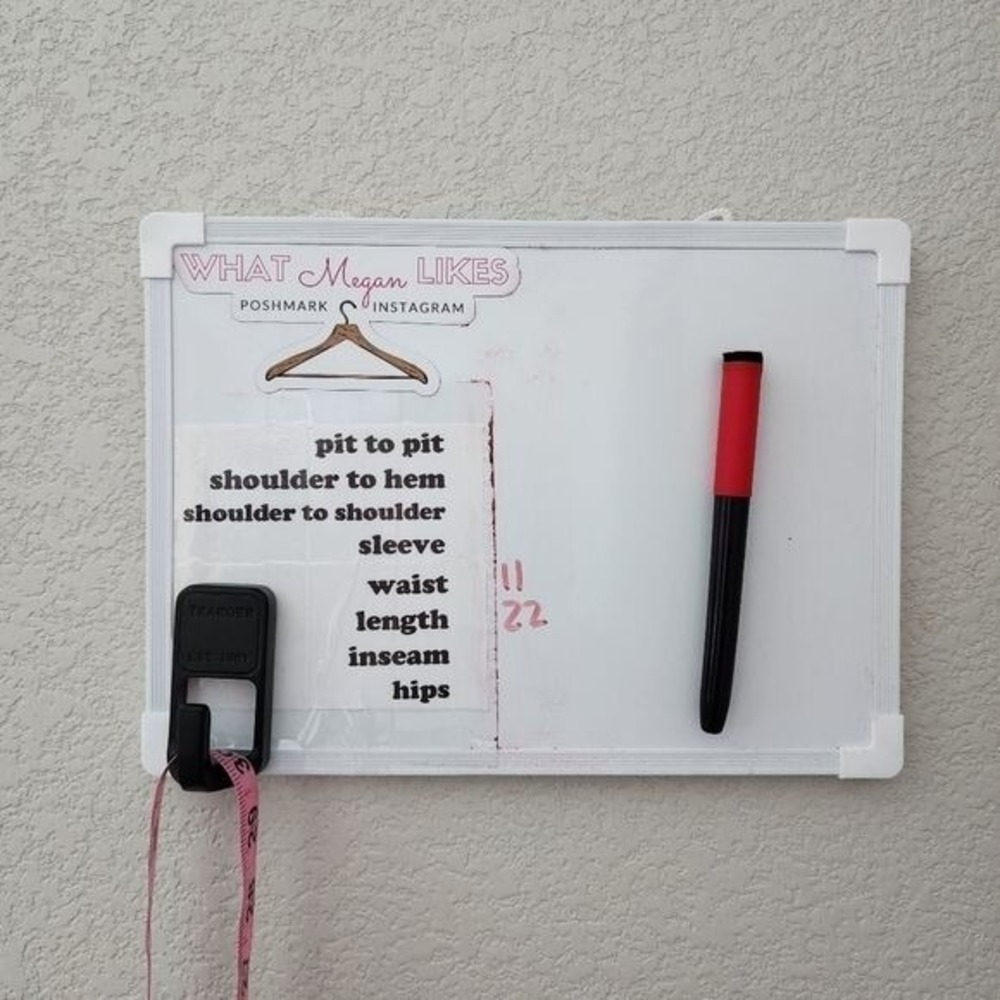 WHAT Megan LIKES
POSHMARK INSTAGRAM
pit to pit
shoulder to hem
shoulder to shoulder
sleeve
waist 11
length 22
inseam
hips